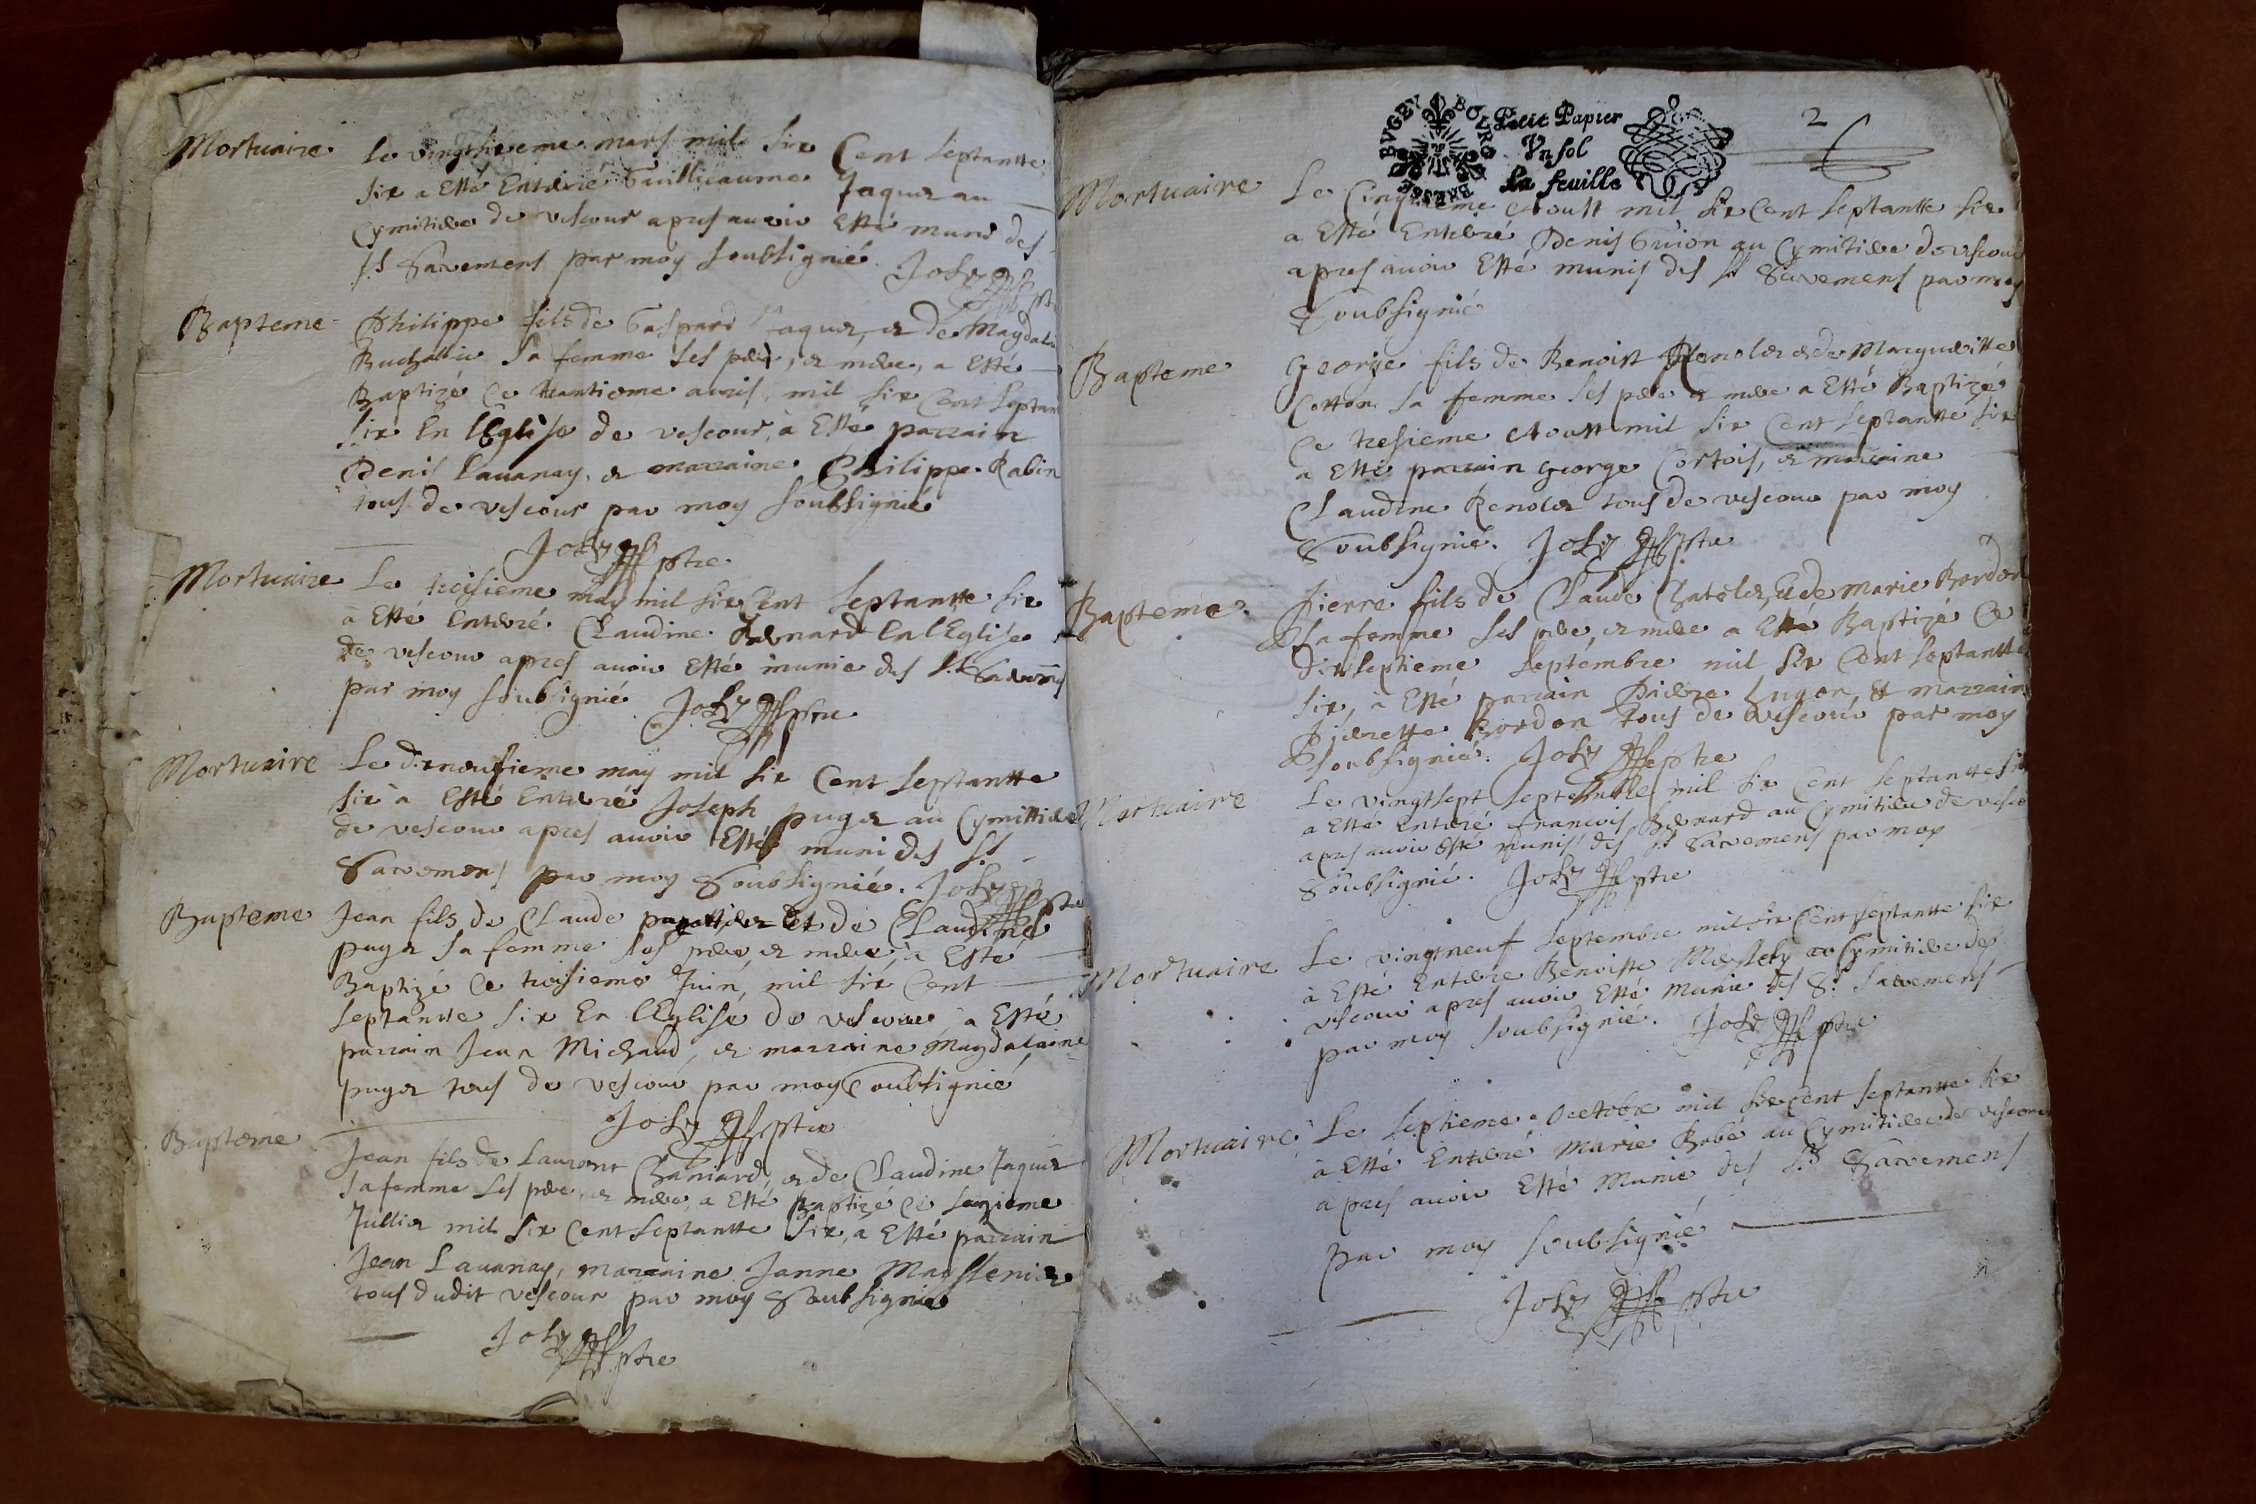 Mortuaire
Le vingtsixieme mars mil six Cent septantte
six a Esté Enterré Guilliaume Jaquer au
Cymitiere de vescour apres auoir Esté muni des
sts Sacremens par moy soubsignié Joly ptre
Bapteme
Philippe fils de Gaspard Jaquer, et de Magdal
sa femme ses pere, et mere, a Esté
Baptizé Ce trantieme auril, mil six Cent septan
six En l'Eglise de vescour, a Esté parrain
Denis Lauanay, et marraine Philippe Rabin
tous de vescour par moy soubsignié
Joly ptre
Mortuaire
Le troisieme may mil six Cent septantte six
a Esté Enterré Claudine Bernard En l'Eglise
de vescour apres auoir Esté munie des sts
par moy soubsignié Joly ptre
Mortuaire
Le dixnoufieme may mil six Cent septantte
six a Esté Enterré Joseph puger au Cymittiere
de vescour apres auoir Esté muni des sts
Sacremens par moy Soubsignié. Joly ptre
Bapteme
Jean fils de Claude Et de Claudine
puger sa femme ses pere et mere, a Esté
Baptizé Ce troisieme Juin, mil six Cent
septantte six En l'Eglise de vescour a Esté
parrain Jean Michaud, et marraine Magdalaine
puger tous de vescour par moy Soubsignié
Joly ptre
Bapteme
Jean fils de Laurent Chaniard, et de Claudine Jaquer
sa femme ses pere, et mere, a Esté Baptizé Ce sezieme
Jullier mil six Cent septantte six, a Esté parrain
Jean Lauanay, marraine Janne
tous dudit vescour par moy Soubsignié
Joly ptre
BVGEY
BRESSE
Petit Papier
Vn sol
La feuille
2
Mortuaire
Le Cinquieme Aoust mil six Cent septantte six
a Esté Enterré Denis Guion au Cymitiere de vescour
apres auoir Esté munis des st Sacremens par moy
Soubsignié
Bapteme
George fils de Benoist Renoler et de Margueritte
Cotton sa femme ses pere et mere a Esté Baptizé
Ce tresieme Aoust mil six Cent septantte six
a Esté parrain George Cortois, et marraine
Claudine Renoler tous de vescour par moy
Soubsignié. Joly ptre
Bapteme
Pierre fils de Claude Chateler, et de Marie Bordon
sa femme ses pere, et mere a Esté Baptizé Ce
dixseptieme septembre mil six Cent septantte
six, a Esté parrain Pierre Luger, et marrain
Pierrette Bordon tous de vescour par moy
soubsignié. Joly ptre
Mortuaire
Le vingtsept septembre mil six Cent septantte six
a Esté Enterré francois Bernard au Cymitiere de vesco
apres auoir Esté munis des st Sacremens par moy
Soubsignié. Joly ptre
Mortuaire
Le vingtneuf septembre mil six Cent septantte six
a Esté Enterré Benoiste au Cymitiere de
vescour apres auoir Esté Munie des St Sacremens
par moy soubsignié. Joly ptre
Mortuaire
Le septieme octobre mil six Cent septantte six
a Esté Enterré Marie Bobé au Cymitiere de vescour
apres auoir Esté Munie des sts Sacremens
Par moy soubsignié
Joly ptre